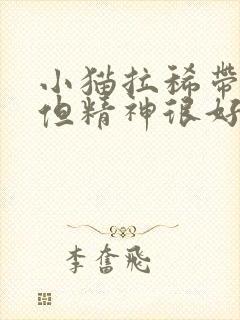 小猫拉稀带
但精神很好
李奮飛